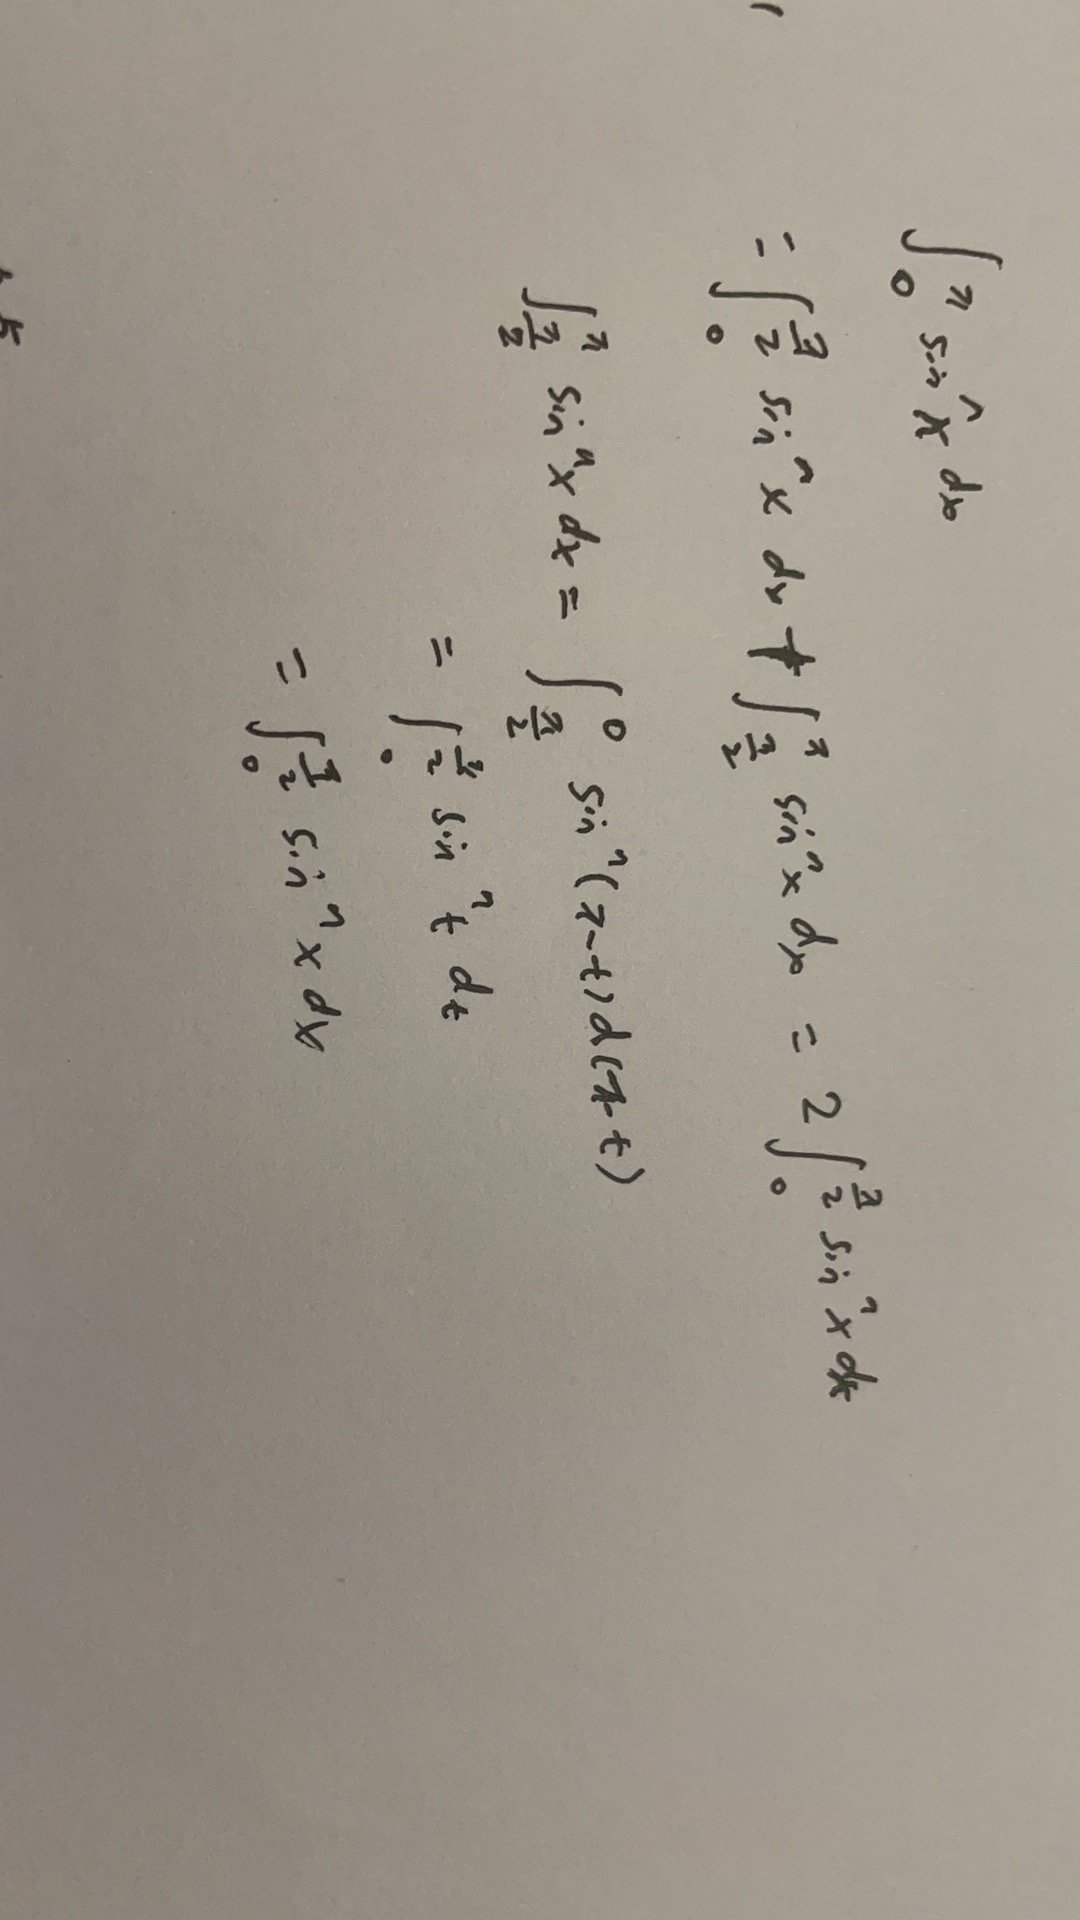 ∫₀^π sinⁿx dx
= ∫₀^{π/2} sinⁿx dx + ∫_{π/2}^π sinⁿx dx = 2∫₀^{π/2} sinⁿx dx
∫_{π/2}^π sinⁿx dx = ∫_{π/2}^0 sinⁿ(π-t) d(π-t)
= ∫₀^{π/2} sinⁿt dt
= ∫₀^{π/2} sinⁿx dx